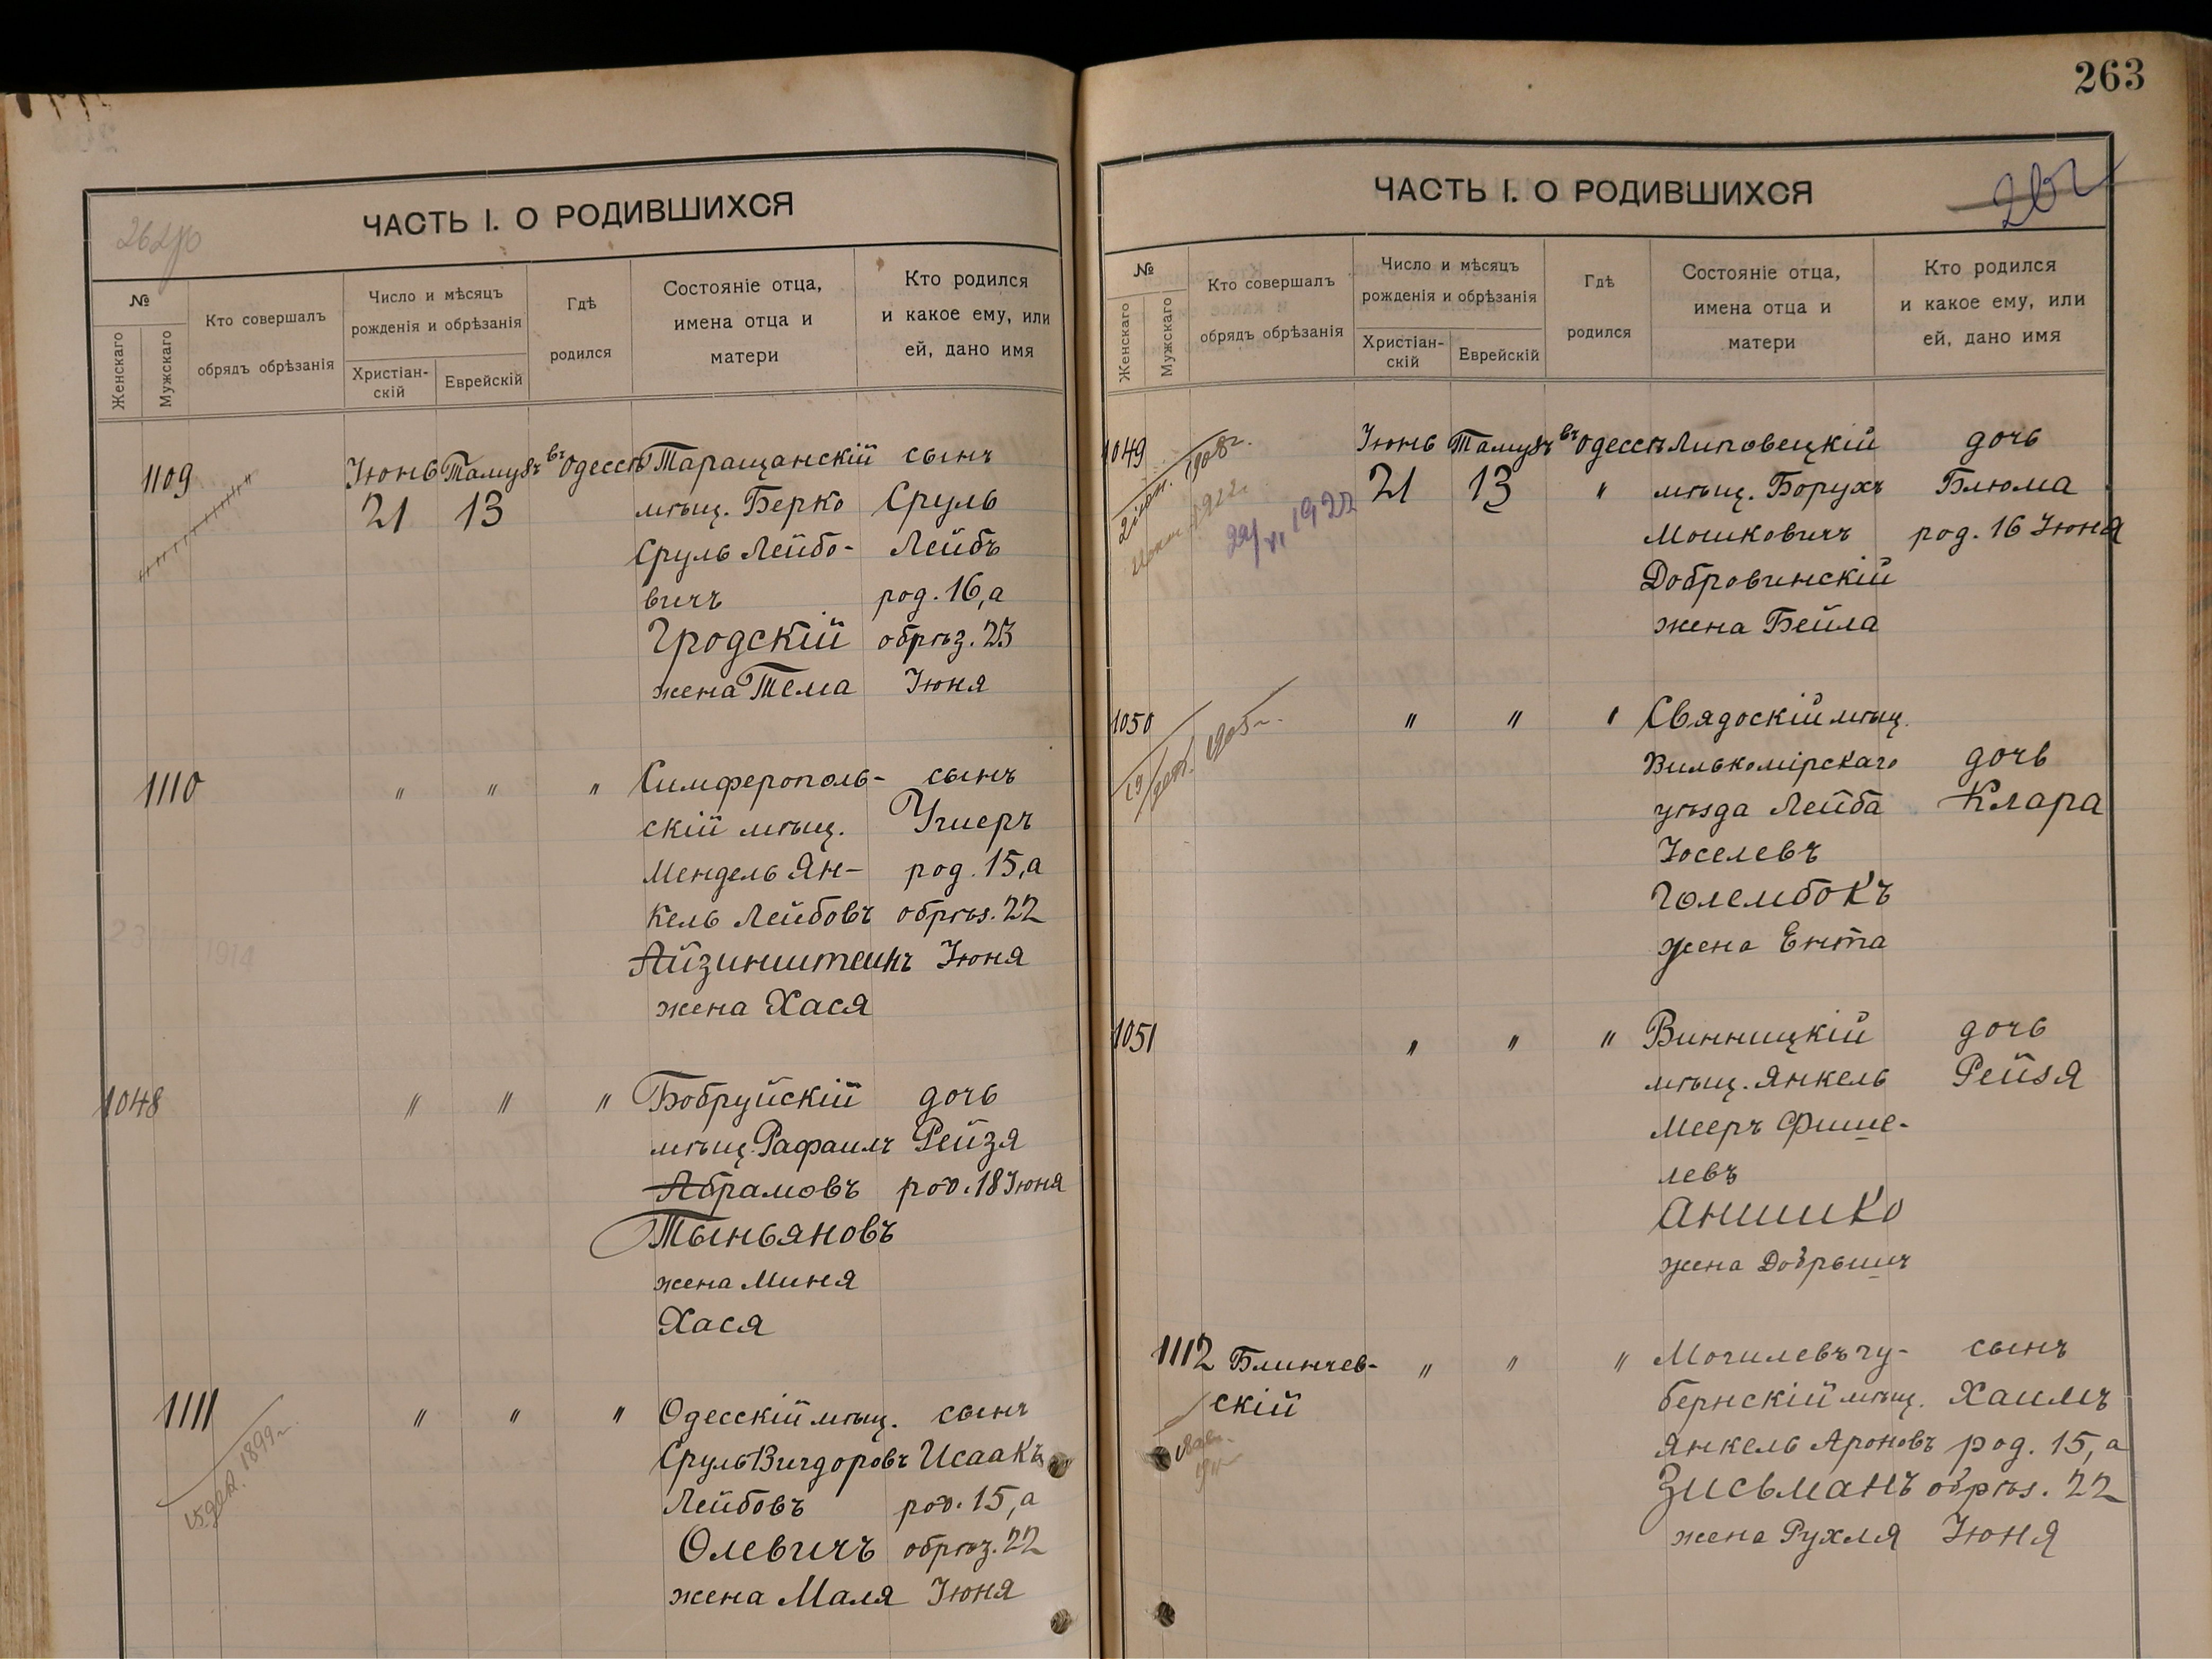 263
ЧАСТЬ I. О РОДИВШИХСЯ
№
Женскаго
Мужскаго
Кто совершалъ
обрядъ обрѣзанія
Число и мѣсяцъ
рожденія и обрѣзанія
Христіан-
скій
Еврейскій
Гдѣ
родился
Состояніе отца,
имена отца и
матери
Кто родился
и какое ему, или
ей, дано имя
1109 Іюнь Тамузъ въ Одессѣ Таращанскій сынъ
21 13 мѣщ. Берко Сруль
Сруль Лейбо- Лейбъ
вичъ род. 16, а
Гродскій обрѣз. 23
жена Тема Іюня
1110 " " " Симферополь- сынъ
скій мѣщ. Ушеръ
Мендель Ян- род. 15, а
кель Лейбовъ обрѣз. 22
Айзинштейнъ Іюня
жена Хася
1048 " " " Бобруйскій дочь
мѣщ. Рафаилъ Рейзя
Абрамовъ род. 18 Іюня
Тыньяновъ
жена Миня
Хася
1111 " " " Одесскій мѣщ. сынъ
Сруль Вигдоровъ Исаакъ
Лейбовъ род. 15, а
Олевичъ обрѣз. 22
жена Маля Іюня
15 дек. 1899 г.
ЧАСТЬ I. О РОДИВШИХСЯ
№
Женскаго
Мужскаго
Кто совершалъ
обрядъ обрѣзанія
Число и мѣсяцъ
рожденія и обрѣзанія
Христіан-
скій
Еврейскій
Гдѣ
родился
Состояніе отца,
имена отца и
матери
Кто родился
и какое ему, или
ей, дано имя
1049 Іюнь Тамузъ въ Одессѣ Липовецкій дочь
21 13 " мѣщ. Борухъ Блюма
Мошковичъ род. 16 Іюня
Добровинскій
жена Бейла
1908 г.
22/VI 1922
1050 " " " Свядоскій мѣщ.
Вилькомірскаго дочь
уѣзда Лейба Клара
Іоселевъ
Голембокъ
жена Ента
1905 г.
1051 " " " Винницкій дочь
мѣщ. Янкель Рейзя
Мееръ Фише-
левъ
Аншико
жена Добрышъ
1112 Блинчев- " " " Могилевъ гу- сынъ
скій бернскій мѣщ. Хаимъ
Янкель Ароновъ род. 15, а
Зисьманъ обрѣз. 22
жена Рухля Іюня